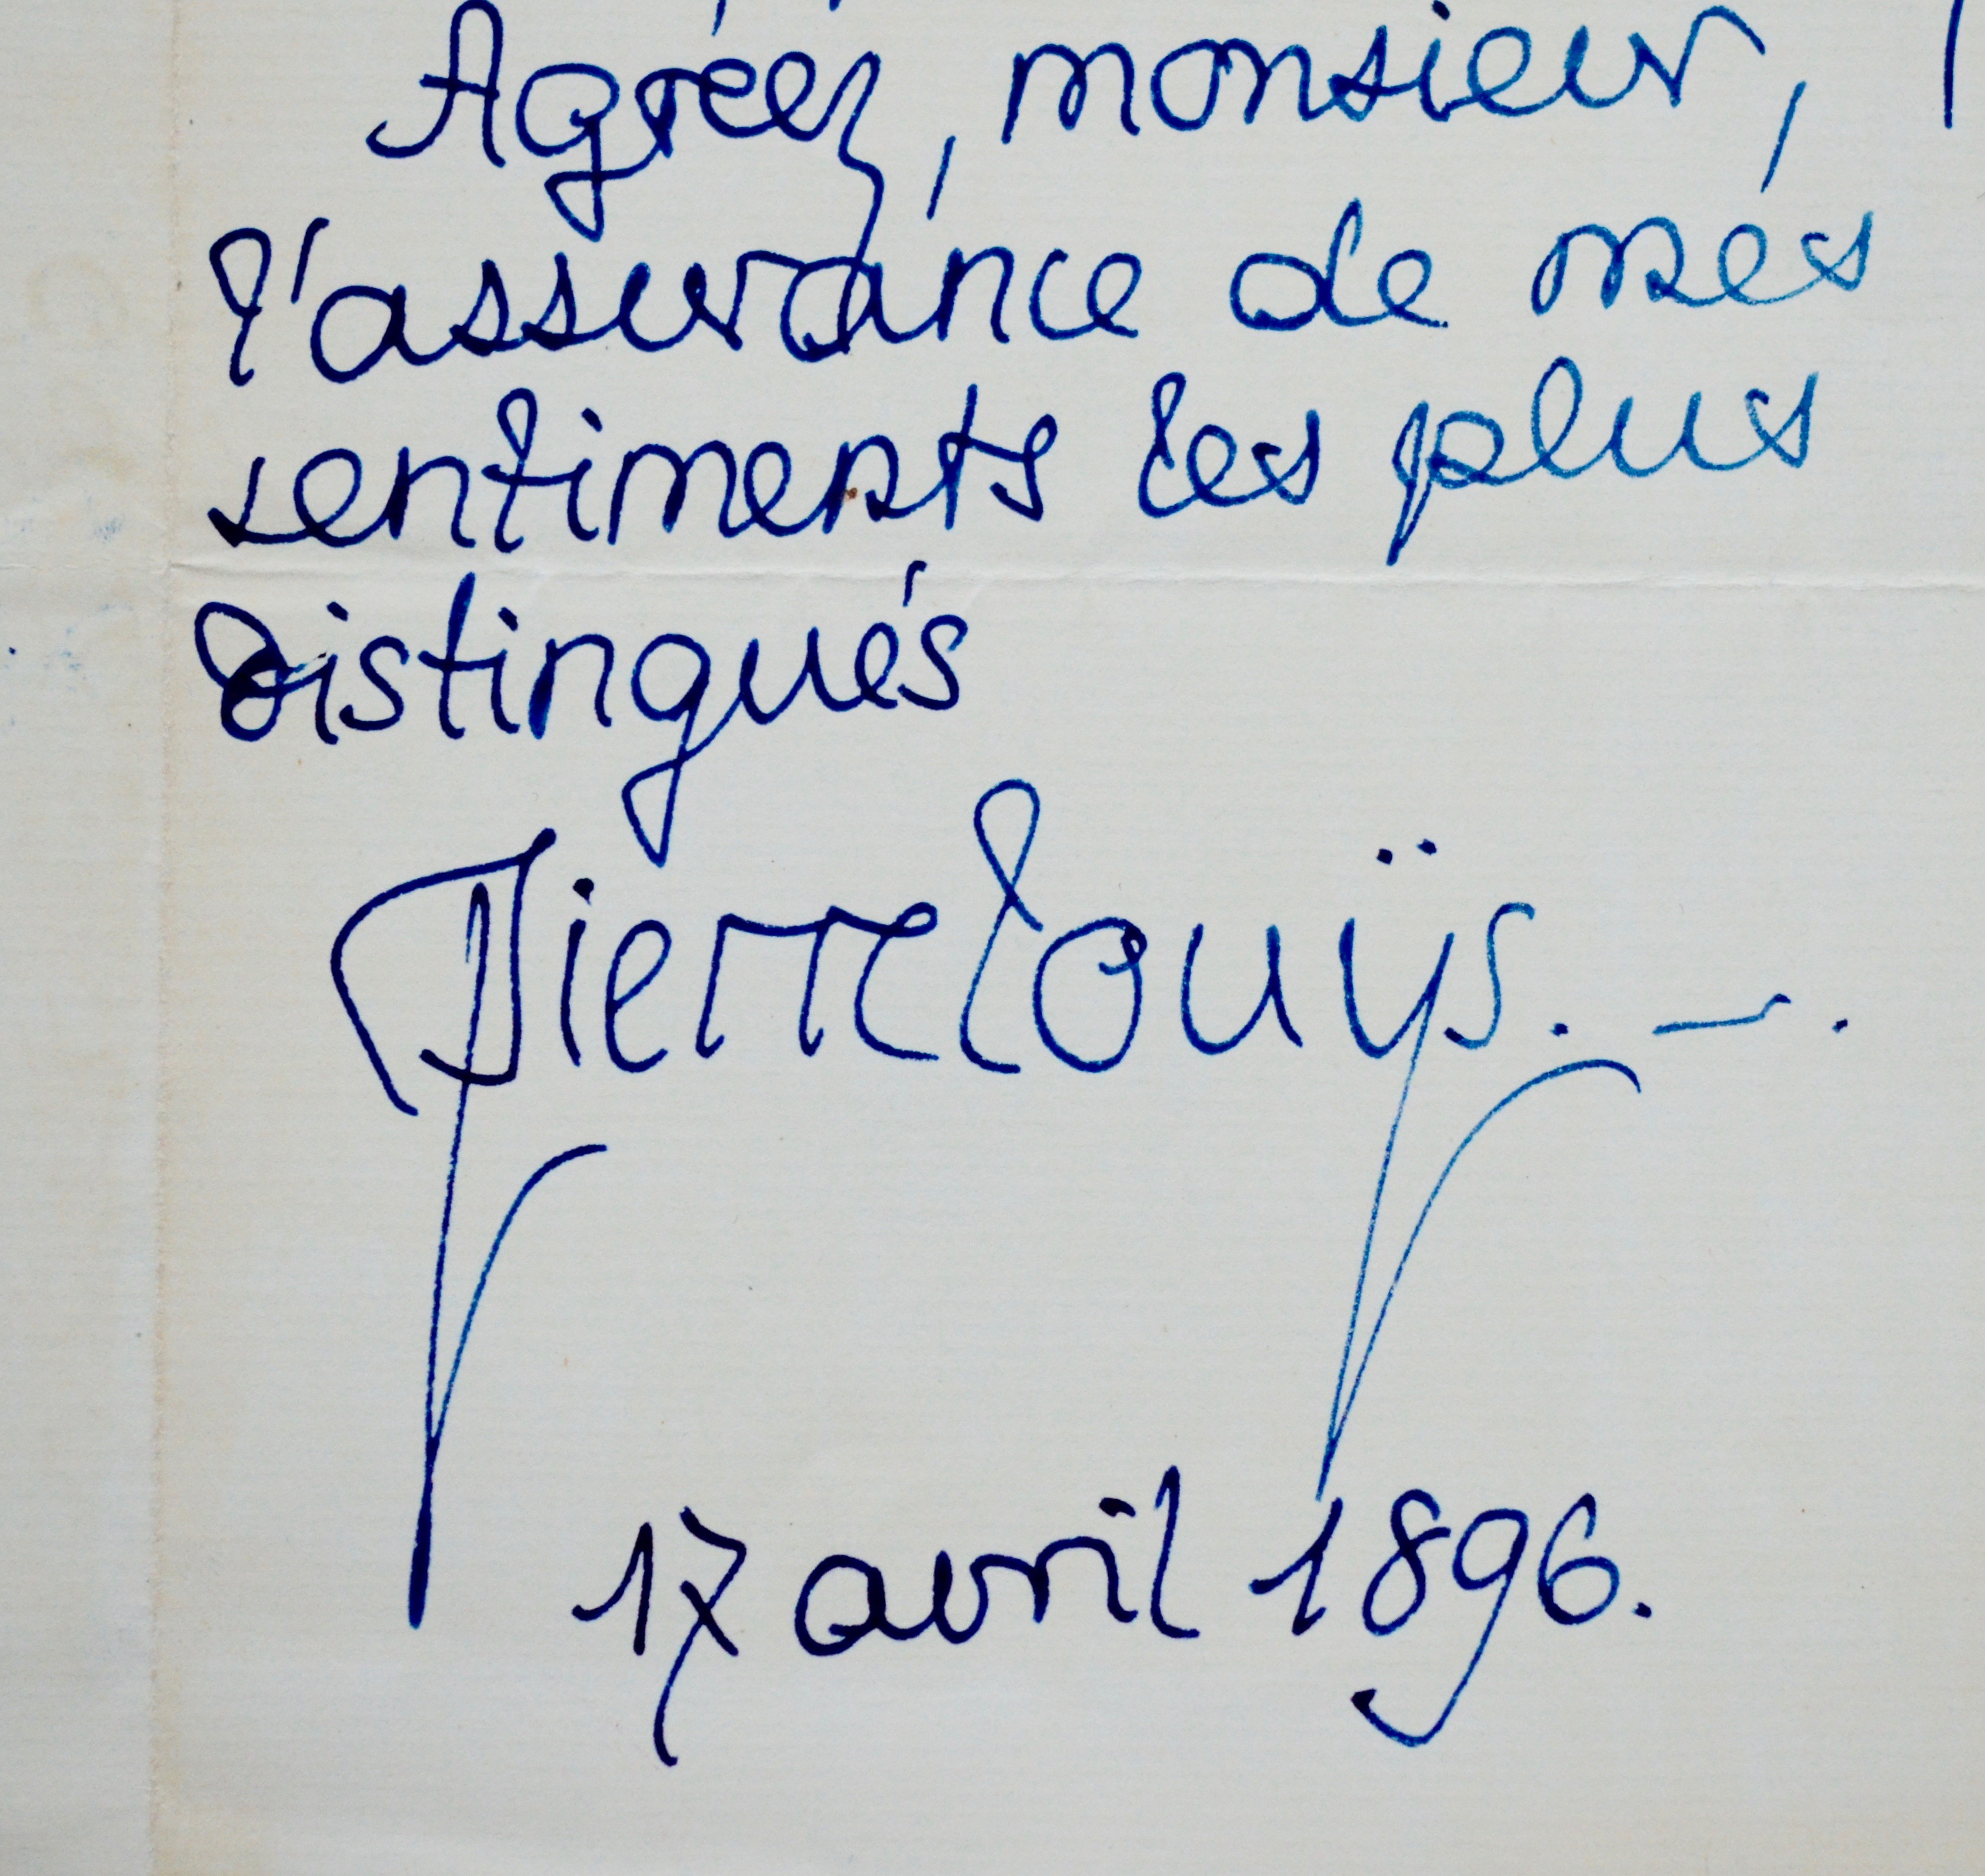 Agréez, monsieur,
l'assurance de mes
sentiments les plus
distingués
Pierre Louÿs. —.
17 avril 1896.